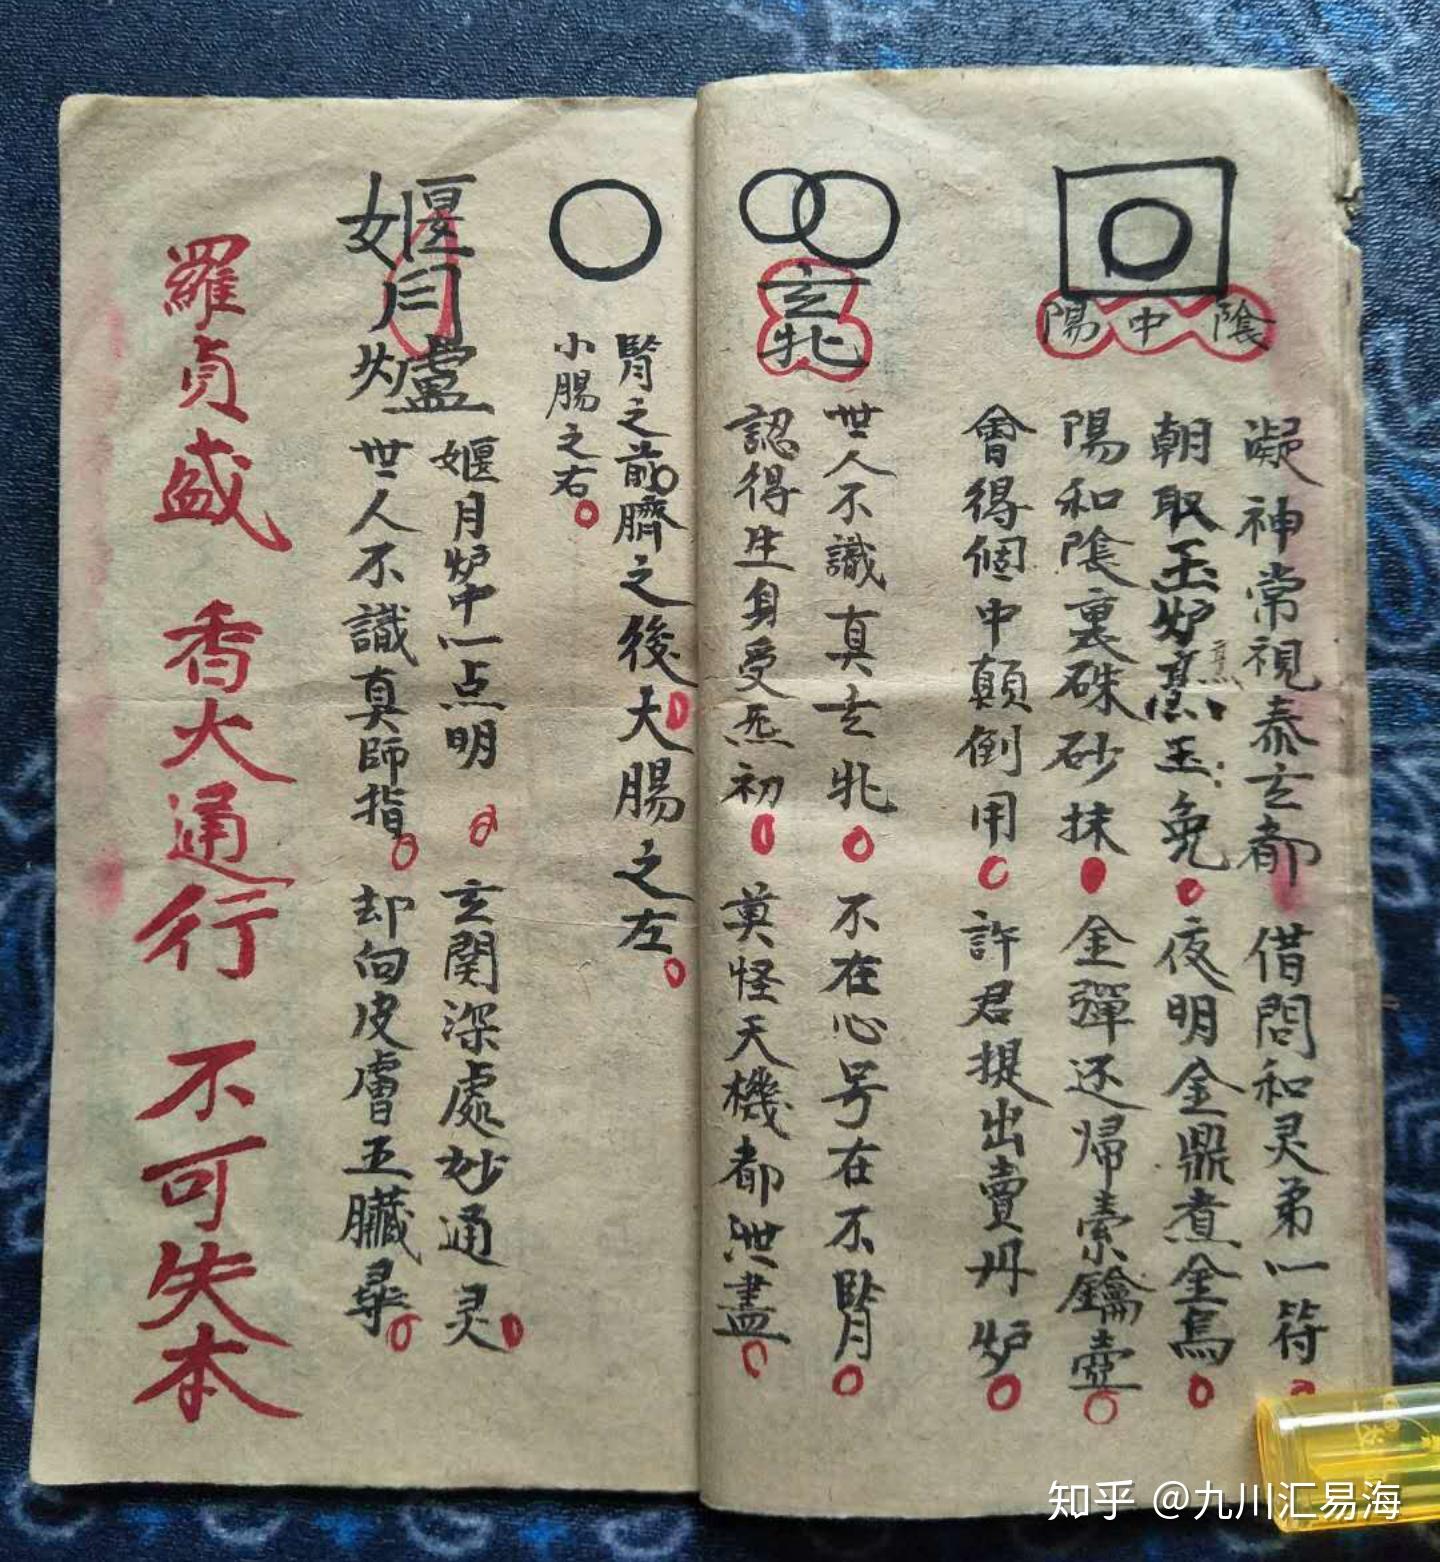 陽中陰
凝神常視泰玄都 借問和灵弟一符
朝取玉炉烹玉兔 夜明金鼎煮金烏
烹
陽和陰裏硃砂抹 金彈还歸索鑰壺
會得個中顛倒用 許君提出賣丹炉
玄牝
世人不識真玄牝 不在心号在不腎
認得生身受炁初 莫怪天機都泄盡
腎之前臍之後大腸之左
小腸之右
嫣月炉中一点明 玄関深處妙通灵
世人不識真師指 却向皮膚五臟尋
羅貞盛 香大通行 不可失本
知乎 @九川汇易海